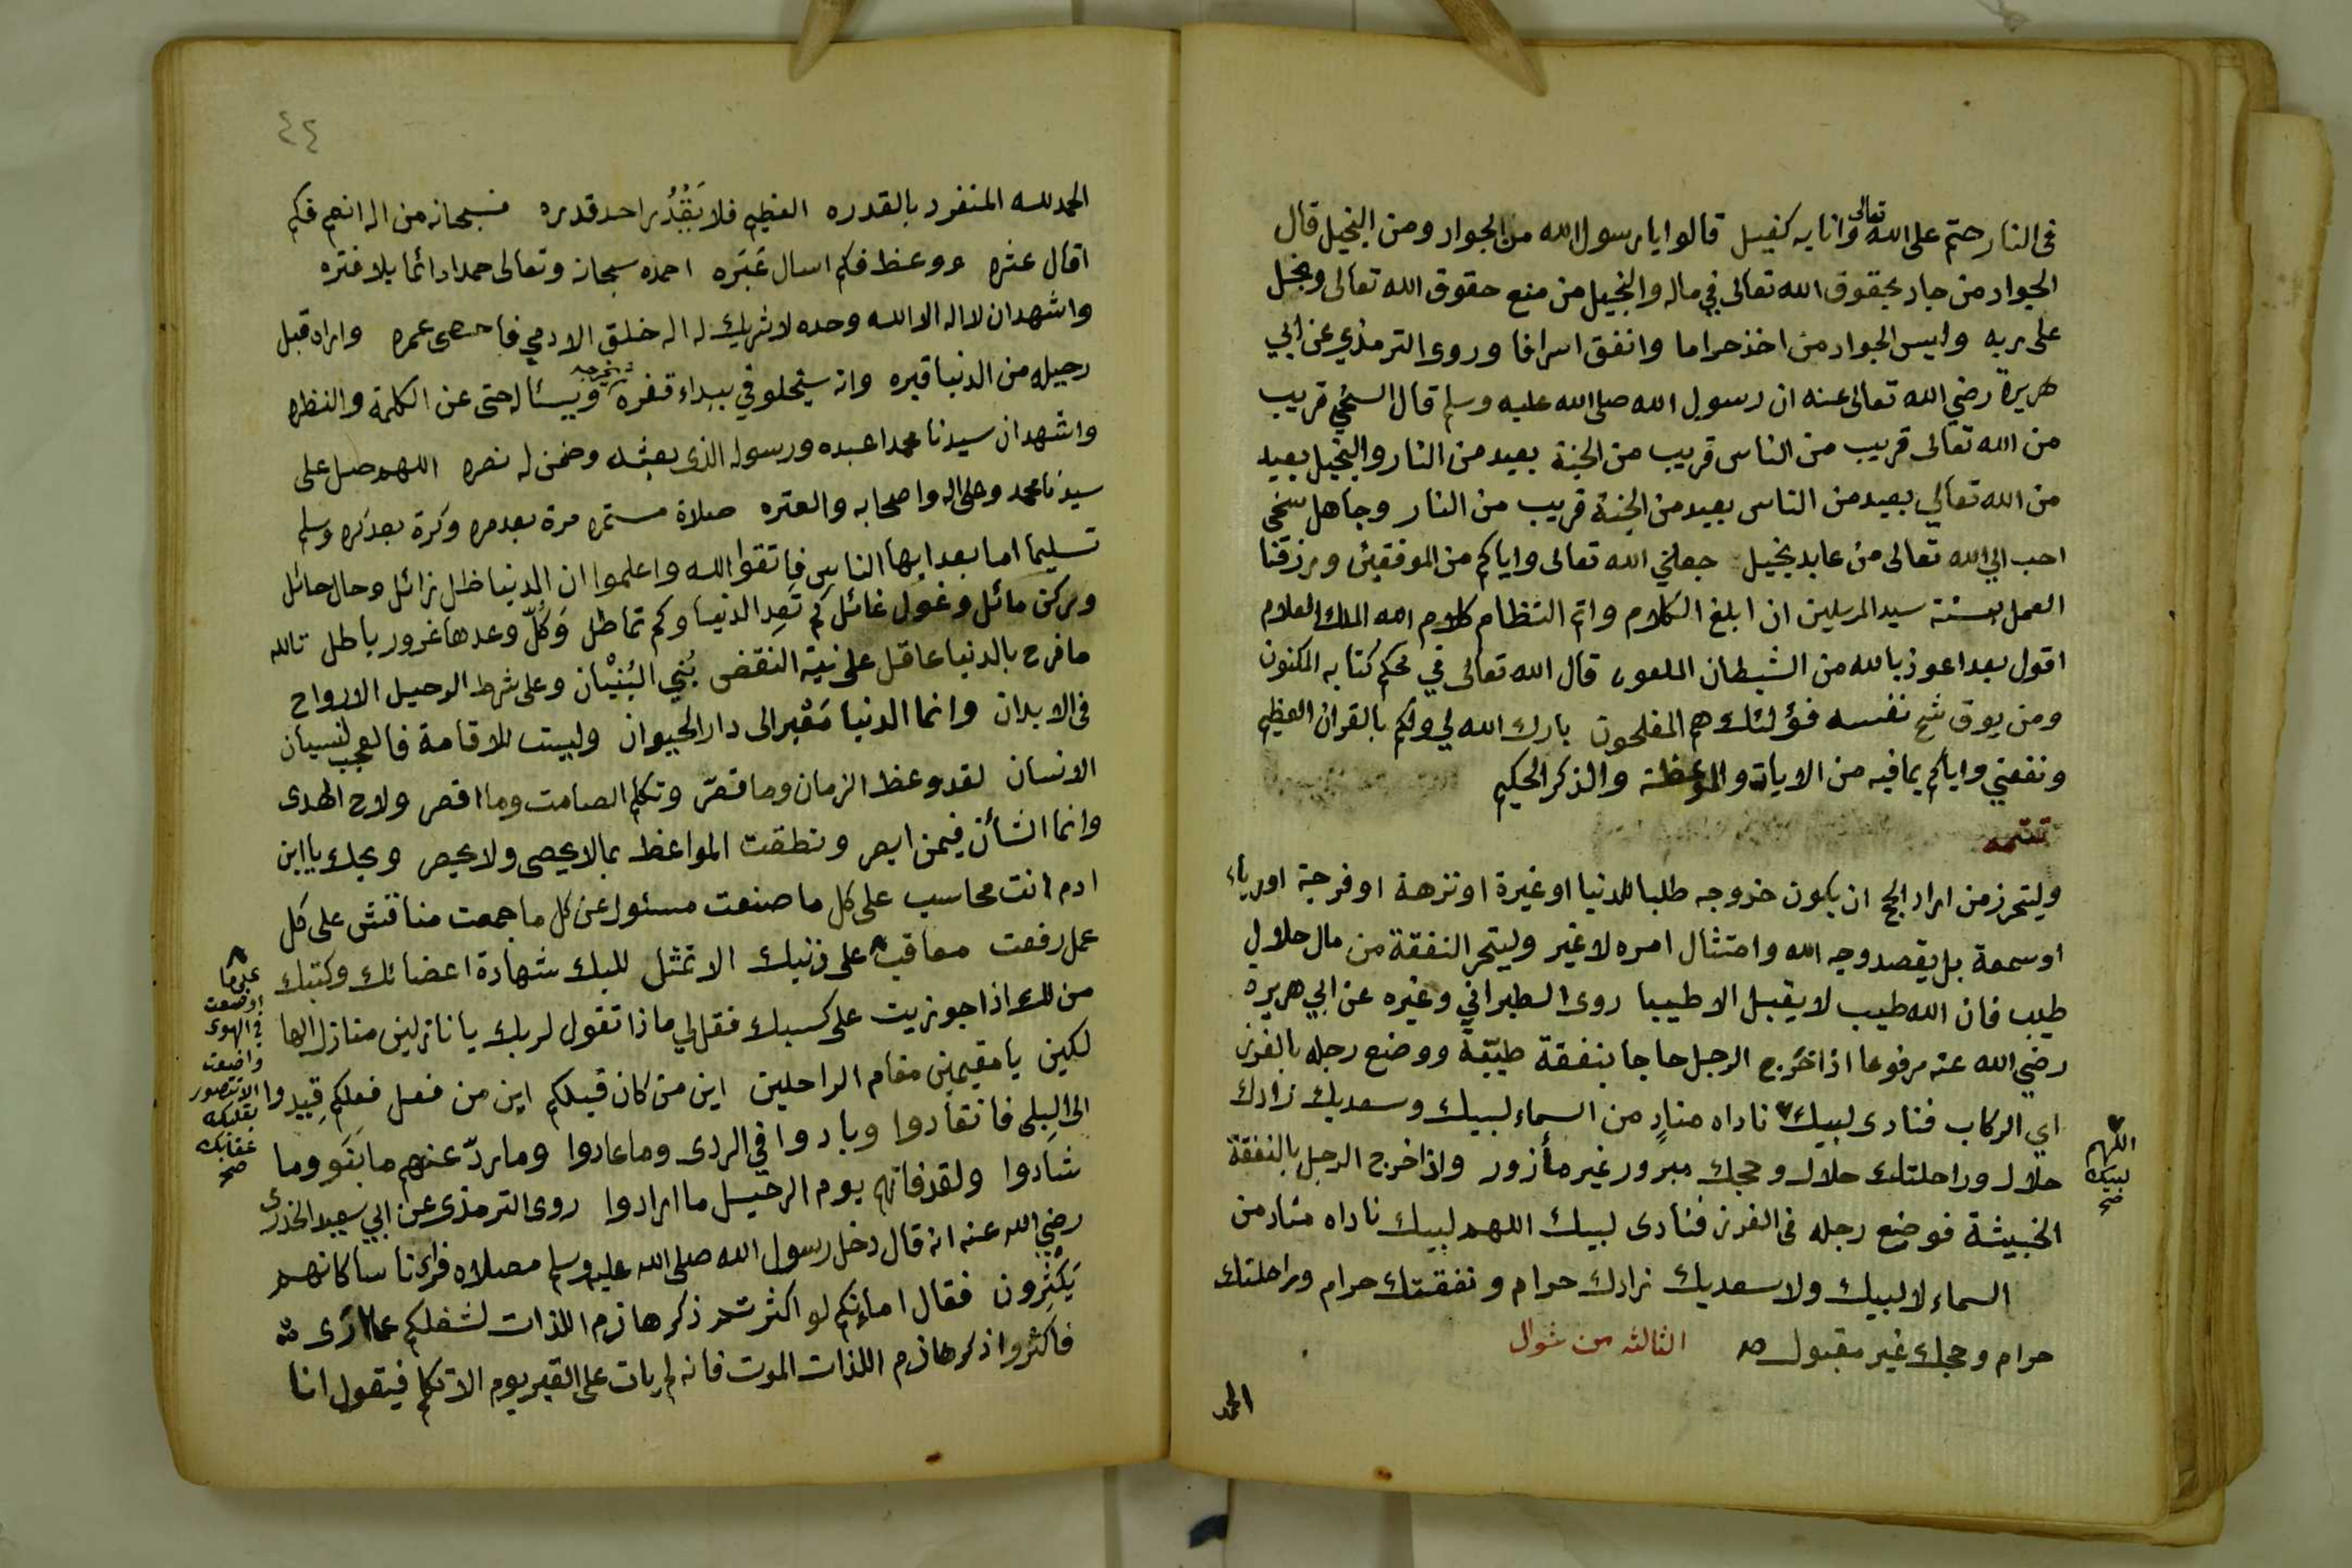 في النار حتم على الله تعالى وانا به كفيل قالوا يا رسول الله من الجواد ومن البخيل قال
الجواد من جاد بحقوق الله تعالى في ماله والبخيل من منع حقوق الله تعالى وبخل
على ربه وليس الجواد من اخذ حراما وانفق اسرافا وروى الترمذي عن ابي
هريرة رضي الله تعالى عنه ان رسول الله صلى الله عليه وسلم قال السخي قريب
من الله تعالى قريب من الناس قريب من الجنة بعيد من النار والبخيل بعيد
من الله تعالي بعيد من الناس بعيد من الجنة قريب من النار وجاهل سخي
احب الي الله تعالى من عابد بخيل جعلني الله تعالى واياكم من الموفقين ورزقنا
العمل بسنة سيد المرسلين ان ابلغ الكلام واتم النظام كلام الله الملك العلام
اقول بعد اعوذ بالله من الشيطان الملعون قال الله تعالى في محكم كتابه المكنون
ومن يوق شح نفسه فؤلئك هم المفلحون بارك الله لي ولكم بالقران العظيم
ونفعني واياكم بما فيه من الايات والموعظة والذكر الحكيم
تتمه
وليتحرز من اراد الحج ان يكون خروجه طلبا للدنيا او غيرة او نزهة او فرجة او رياء
او سمعة بل يقصد وجه الله وامتثال امره لا غير وليتحر النفقة من مال حلال
طيب فان الله طيب لا يقبل الا طيبا روى الطبراني وغيره عن ابي هريره
رضي الله عنه مرفوعا اذا خرج الرجل حاجا بنفقة طيبة ووضع رجله بالغرز
اي الركاب فنادى لبيك ناداه مناد من السماء لبيك وسعديك زادك
اللهم
لبيك
صح
حلال وراحلتك حلال وحجك مبرور غير مأزور واذا خرج الرجل بالنفقة
الخبيثة فوضع رجله في الغرز فنادى لبيك اللهم لبيك ناداه مناد من
السماء لا لبيك ولا سعديك زادك حرام ونفقتك حرام وراحلتك
حرام وحجك غير مقبول الثالثه من شوال
الحمد
٤٤
الحمد لله المنفرد بالقدره العظيم فلا يَقْدُر احد قدره فسبحانه من اله انعم فكم
اقال عثره ووعظ فكم اسال عَبَره احمده سبحانه وتعالى حمدا دائما بلا فتره
واشهد ان لا اله الا الله وحده لا شريك له اله خلق الادمي فاحصى عمره واراد قبل
رحيله من الدنيا قبره وانه سيخلو في بيداء قفره ويسئاله حتى عن الكلمة والنظره
واشهد ان سيدنا محمدا عبده ورسوله الذي بعثه وضمن له نصره اللهم صل على
سيدنا محمد وعلى اله واصحابه والعتره صلاة مستمره مرة بعد مره وكرة بعد كره وسلم
تسليما اما بعد ايها الناس فاتقوا الله واعلموا ان الدنيا ظل زائل وحال حائل
وركن مائل وغول غائل كم تَعِد الدنيا وكم تماطل وَكُلّ وعدها غرور باطل تالله
ما فرح بالدنيا عاقل على نية النقض بُنِي البُنْيان وعلى شرط الرحيل الارواح
في الابدان وانما الدنيا مَعْبر الى دار الحيوان وليست للاقامة فالعجب لنسيان
الانسان لقد وعظ الزمان وما قصّر وتكلم الصامت وما اقصر ولاح الهدى
وانما الشأن فيمن ابصر ونطقت المواعظ بما لا يحصى ولا يحصر ويحك يا ابن
ادم انت محاسب على كل ما صنعت مسئول عن كل ما جمعت مناقش على كل
عمل رفعت معاقب على ذنبك الا تمثل للبك شهادة اعضائك وكتبك
على ما
اوضعت
في الهوى
واضعت
الا تتصور
بقلبك
عقابك
صح
من لك اذا جوزيت على كسبك فقل لي ماذا تقول لربك يا نازلين منازل الها
لكين يا مقيمين مقام الراحلين اين من كان قبلكم اين من فعل فعلكم قيدوا
الى البِلى فانقادوا وبادوا في الردى وما عادوا وما ردّ عنهم ما بَنَو وما
شادوا ولقد فاتهم يوم الرحيل ما ارادوا روى الترمذي عن ابي سعيد الخدري
رضي الله عنه انه قال دخل رسول الله صلى الله عليه وسلم مصلاه فراى ناسا كانهم
يَكْثِرون فقال اما انكم لو اكثرتم ذكر هازم اللذات لشغلكم عما ارى
فاكثروا ذكر هازم اللذات الموت فانه لم يات على القبر يوم الا تكلم فيقول انا